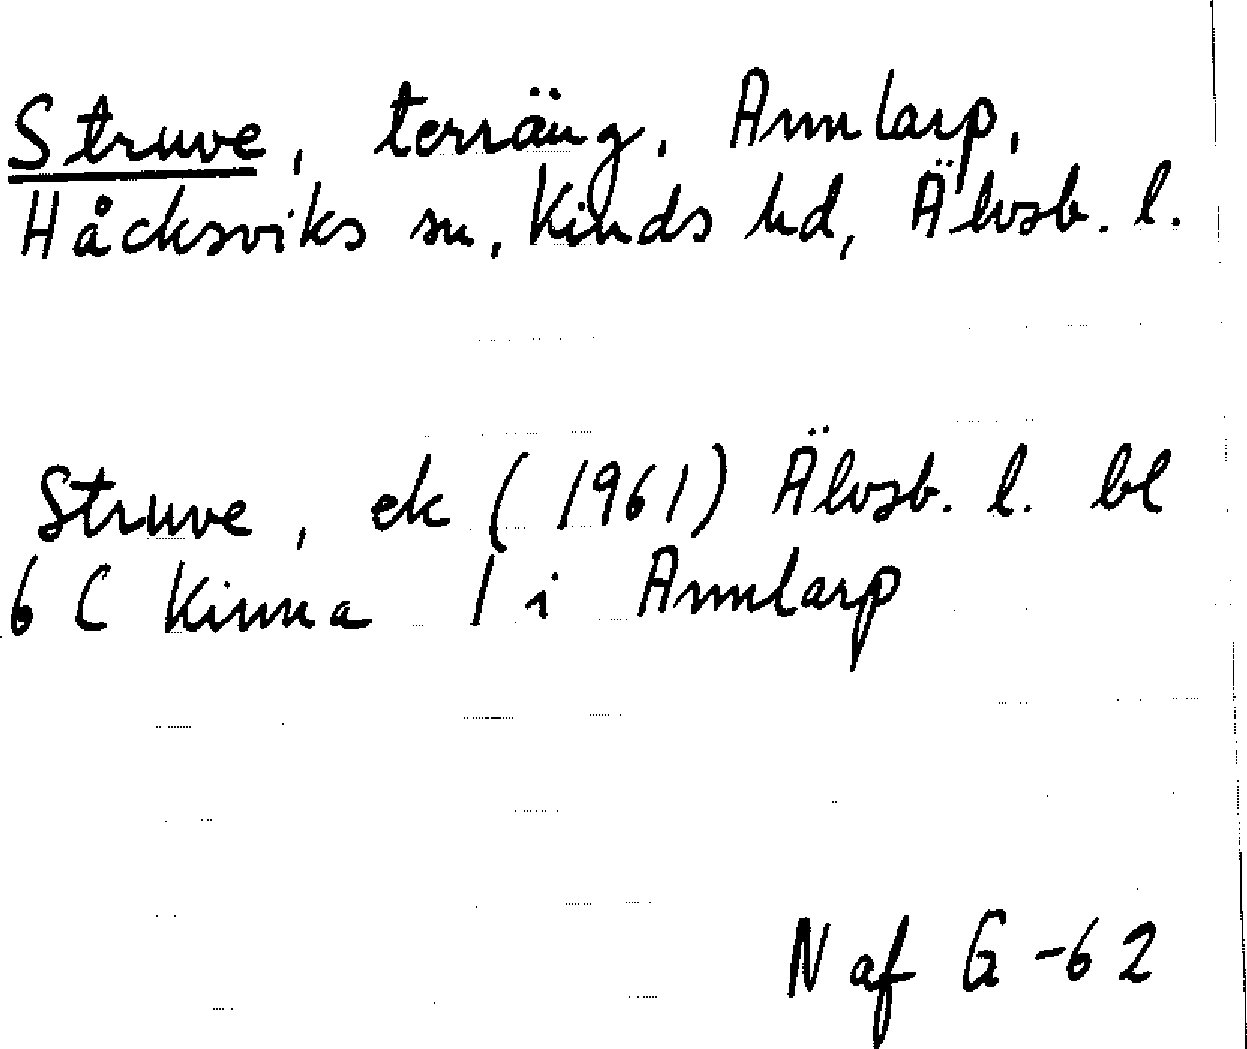 Struve, terräng, Annlarp,
Håcksviks sn, Kinds hd, Älvsb. l.
Struve, ek (1961) Älvsb. l. bl
6 C Kinna 1 i Annlarp
N af G -62